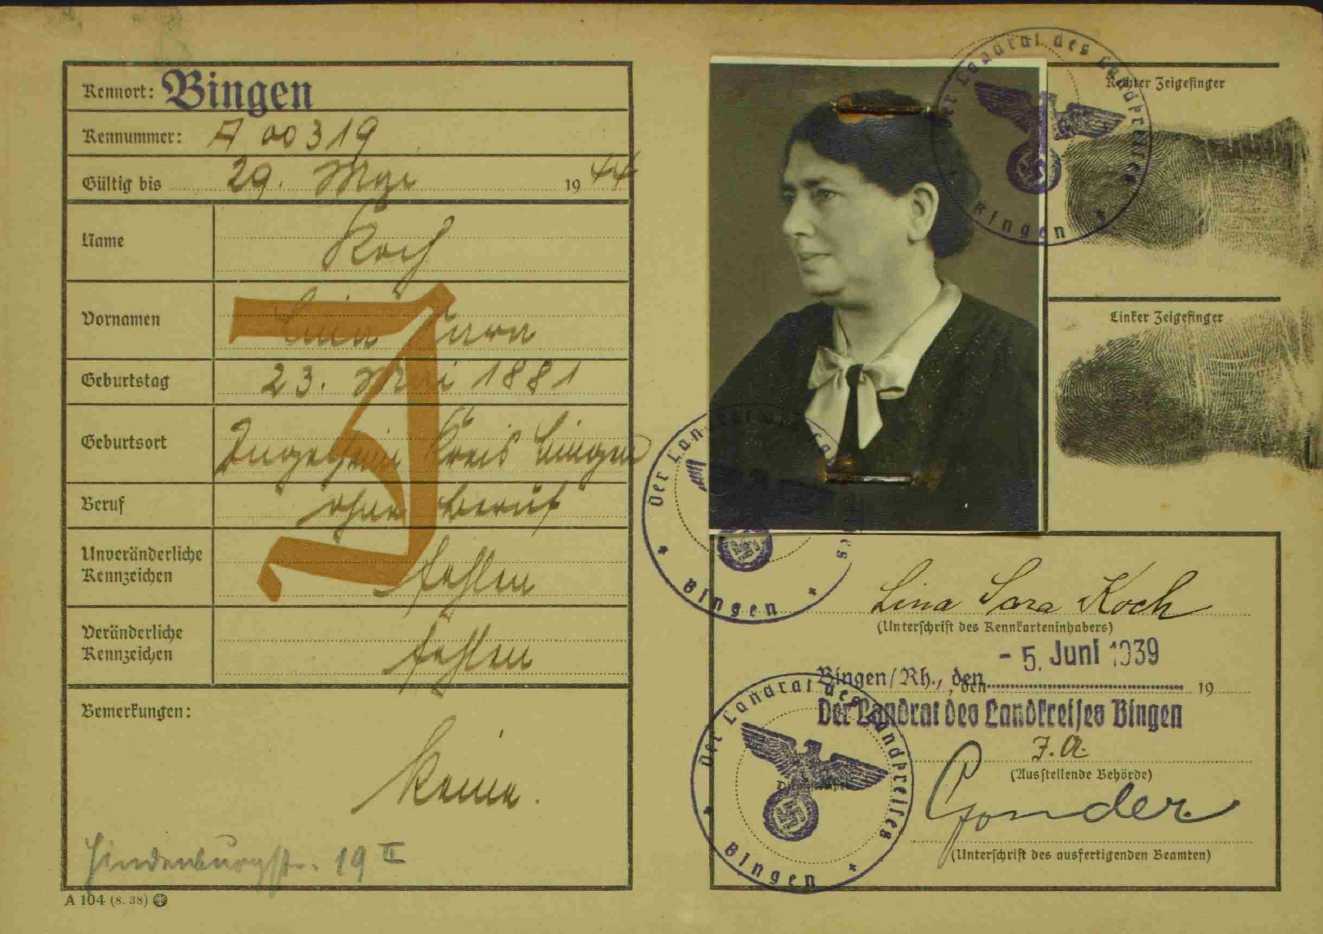 Kennort: Bingen
Kennummer: A 00319
Gültig bis 29. Mai 1944
Name Koch
Vornamen Lina Sara
J
Geburtstag 23. Mai 1881
Geburtsort Ingelheim Kreis Bingen
Beruf ohne Beruf
Unveränderliche Kennzeichen fehlen
Veränderliche Kennzeichen fehlen
Bemerkungen:
Keine.
Hindenburgstr. 19 II
A 104 (8. 38)
Rechter Zeigefinger
Linker Zeigefinger
Der Landrat des Landkreises Bingen
Der Landrat des Landkreises
Bingen
Lina Sara Koch
(Unterschrift des Kennkarteninhabers)
Bingen/Rh., den - 5. Juni 1939
den 19
Der Landrat des Landkreises Bingen
J.A.
(Ausstellende Behörde)
Gonder
(Unterschrift des ausfertigenden Beamten)
Der Landrat des Landkreises
Bingen